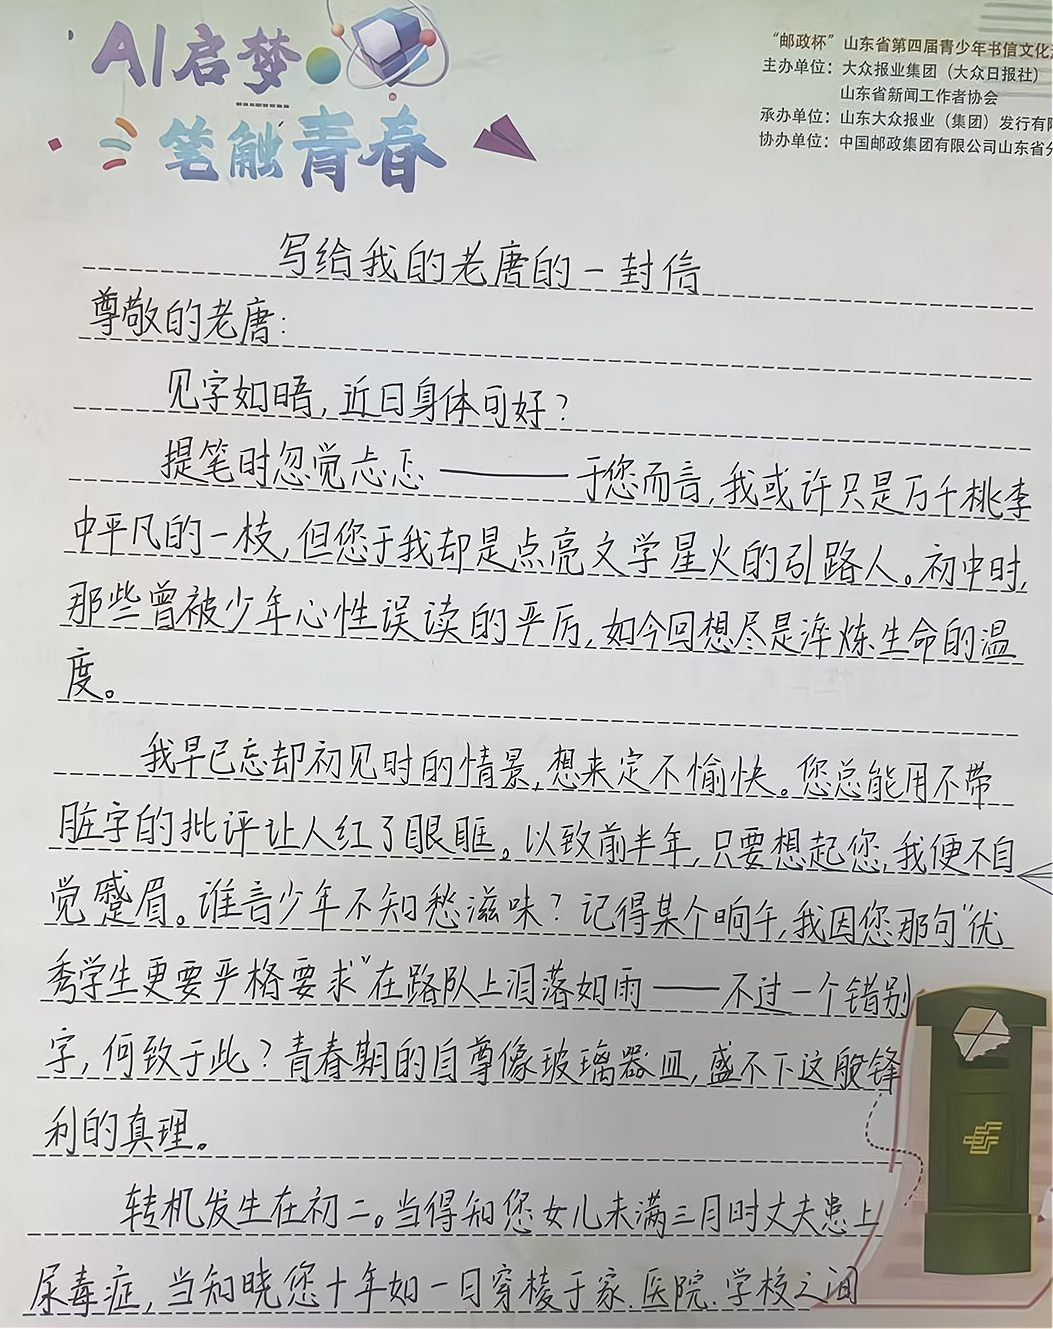 AI启梦
笔触青春
“邮政杯”山东省第四届青少年书信文化
主办单位：大众报业集团（大众日报社）
山东省新闻工作者协会
承办单位：山东大众报业（集团）发行有限
协办单位：中国邮政集团有限公司山东省分
写给我的老唐的一封信
尊敬的老唐：
见字如晤，近日身体可好？
提笔时忽觉忐忑——于您而言，我或许只是万千桃李
中平凡的一枝，但您于我却是点亮文学星火的引路人。初中时，
那些曾被少年心性误读的严厉，如今回想尽是淬炼生命的温
度。
我早已忘却初见时的情景，想来定不愉快。您总能用不带
脏字的批评让人红了眼眶。以致前半年，只要想起您，我便不自
觉蹙眉。谁言少年不知愁滋味？记得某个晌午，我因您那句“优
秀学生更要严格要求”在路队上泪落如雨——不过一个错别
字，何致于此？青春期的自尊像玻璃器皿，盛不下这般锋
利的真理。
转机发生在初二。当得知您女儿未满三月时丈夫患上
尿毒症，当知晓您十年如一日穿梭于家.医院.学校之间